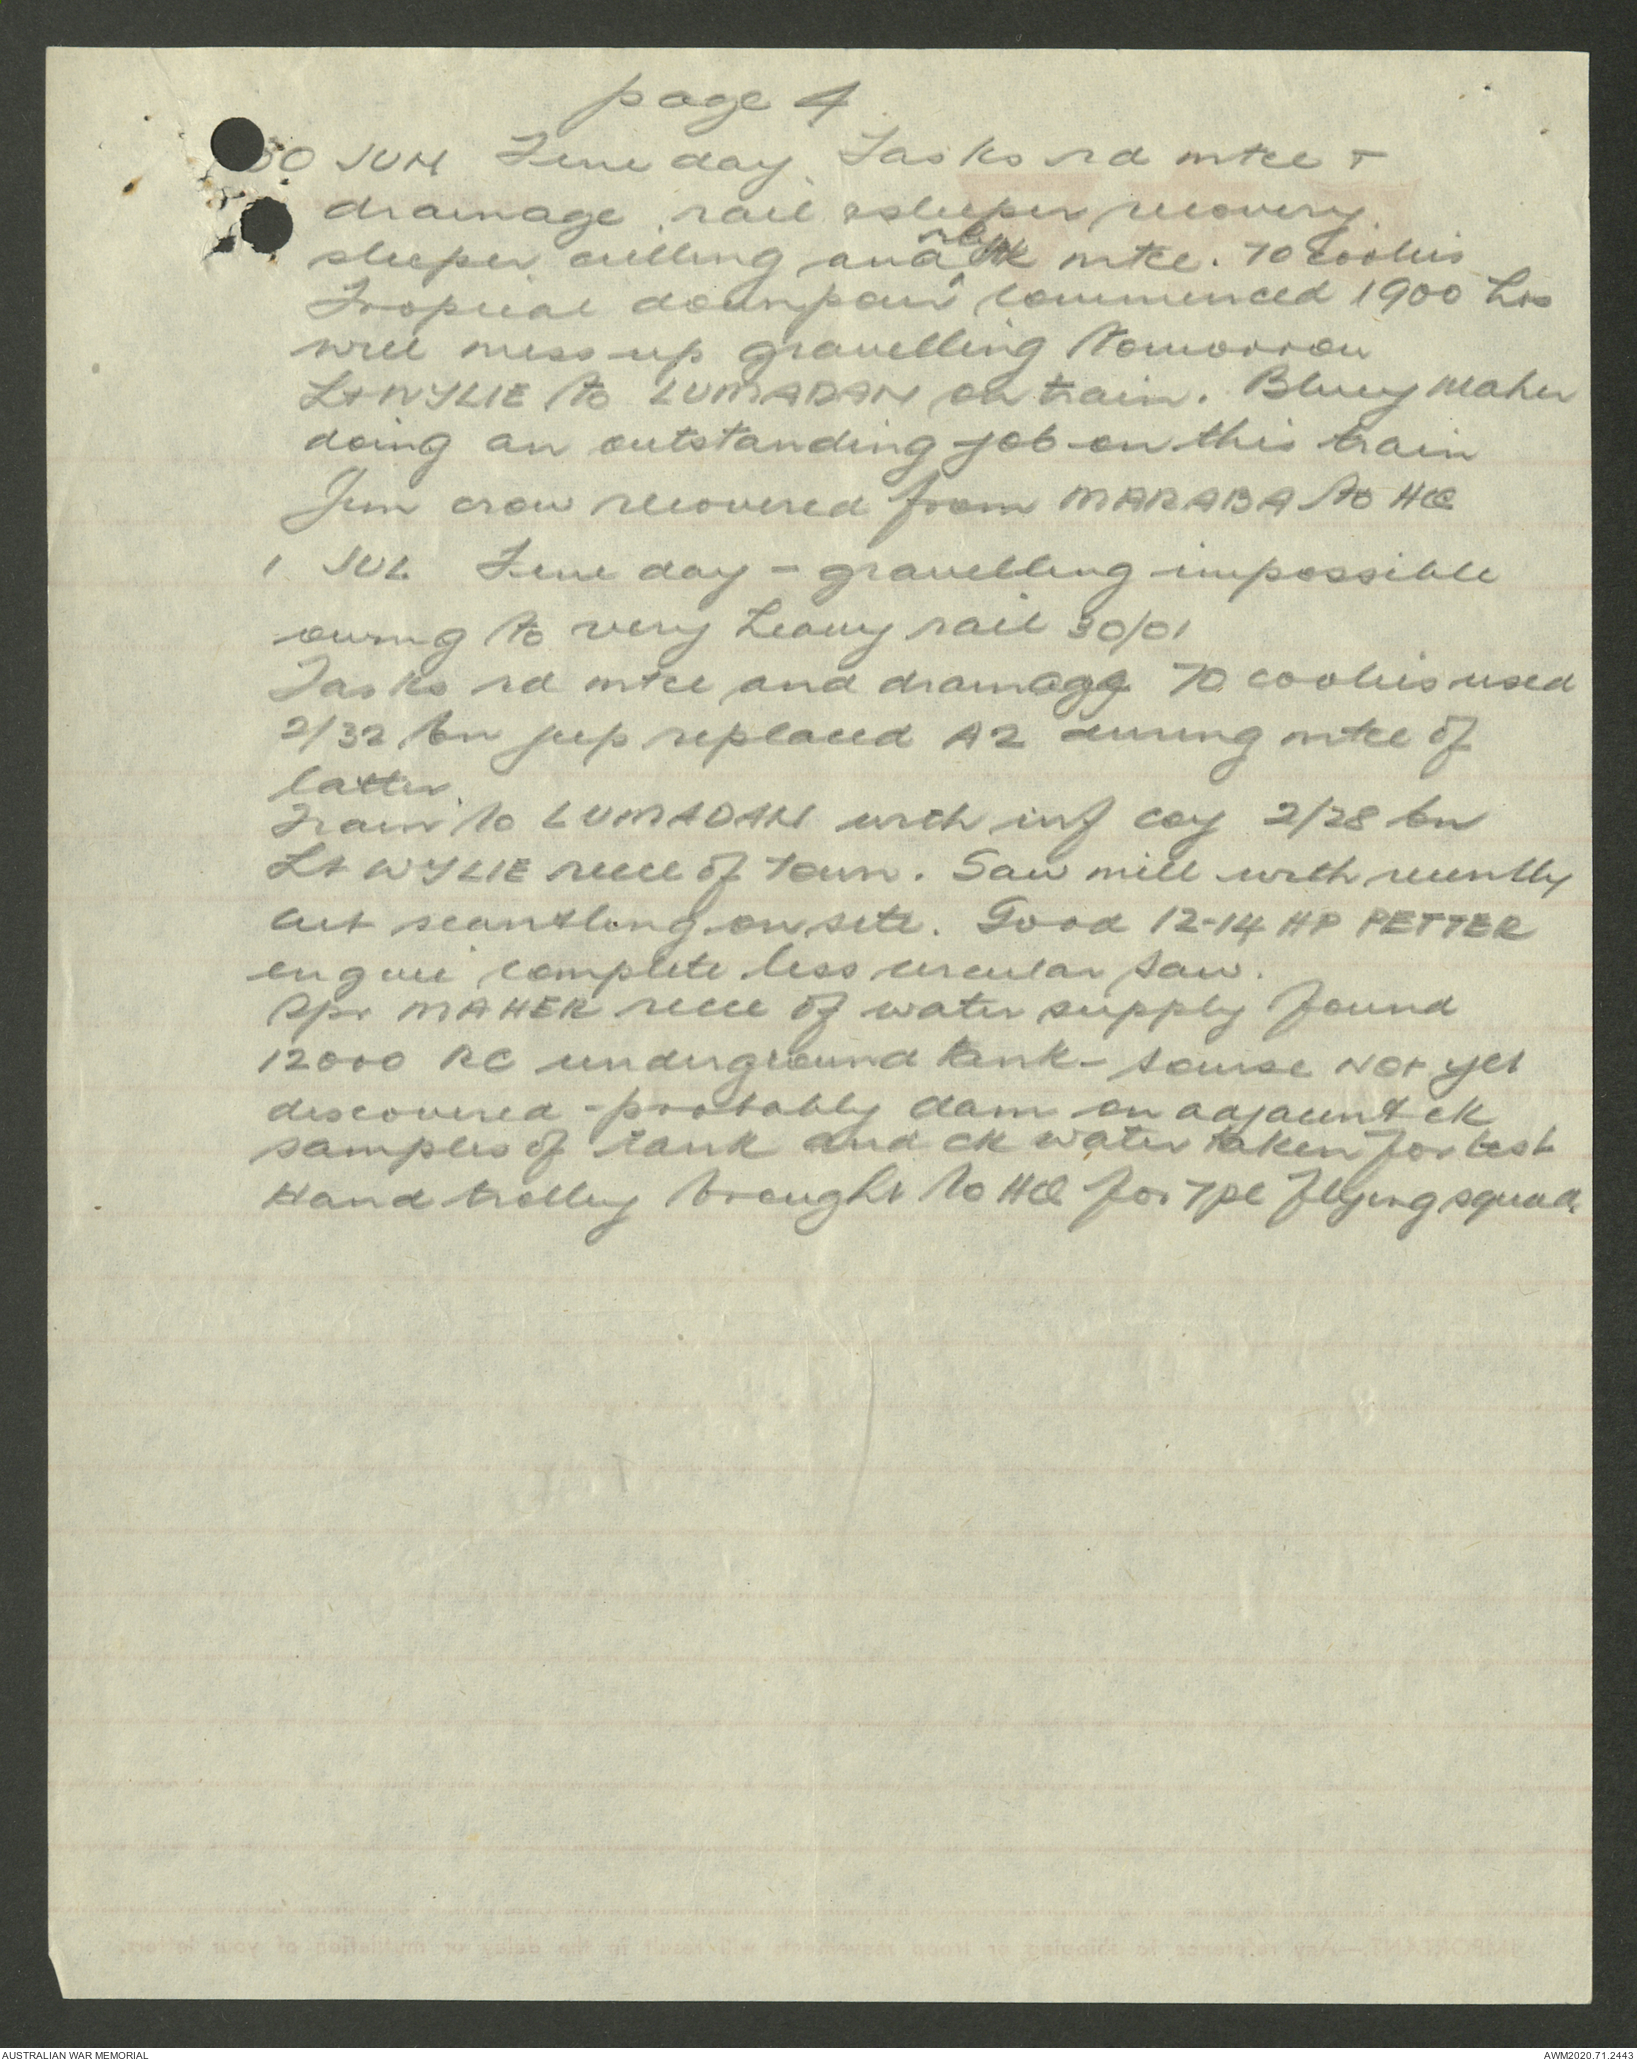 page 4
30 JUN Fine day. Tasks rd mtce +
drainage rail & sleeper recovery
sleeper culling and rly mtce. 70 coolies
Tropical downpour commenced 1900 hrs
will mess up gravelling tomorrow
Lt WYLIE to LUMADAN on train. Bluey Maher
doing an outstanding job on this train
Jim crow recovered from MARABA to HQ
1 JUL Fine day - gravelling impossible
owing to very heavy rail 30/01
Tasks rd mtce and drainage 70 coolies used
2/32 bn jeep replaced A2 during mtce of
latter.
Train to LUMADAN with inf coy 2/28 bn
Lt WYLIE recce of town. Saw mill with recently
cut scantling on site. Good 12-14 HP PETTER
engine complete less circular saw.
Spr MAHER recce of water supply found
12000 RC underground tank - sourse not yet
discovered - probably dam on adjacent ck
samples of tank and ck water taken for test
Hand trolley brought to HQ for 7pl flying squad.
IMPORTANT.—Any reference to shipping or troop movements will result in the delay or mutilation of your letters.
AUSTRALIAN WAR MEMORIAL
AWM2020.71.2443